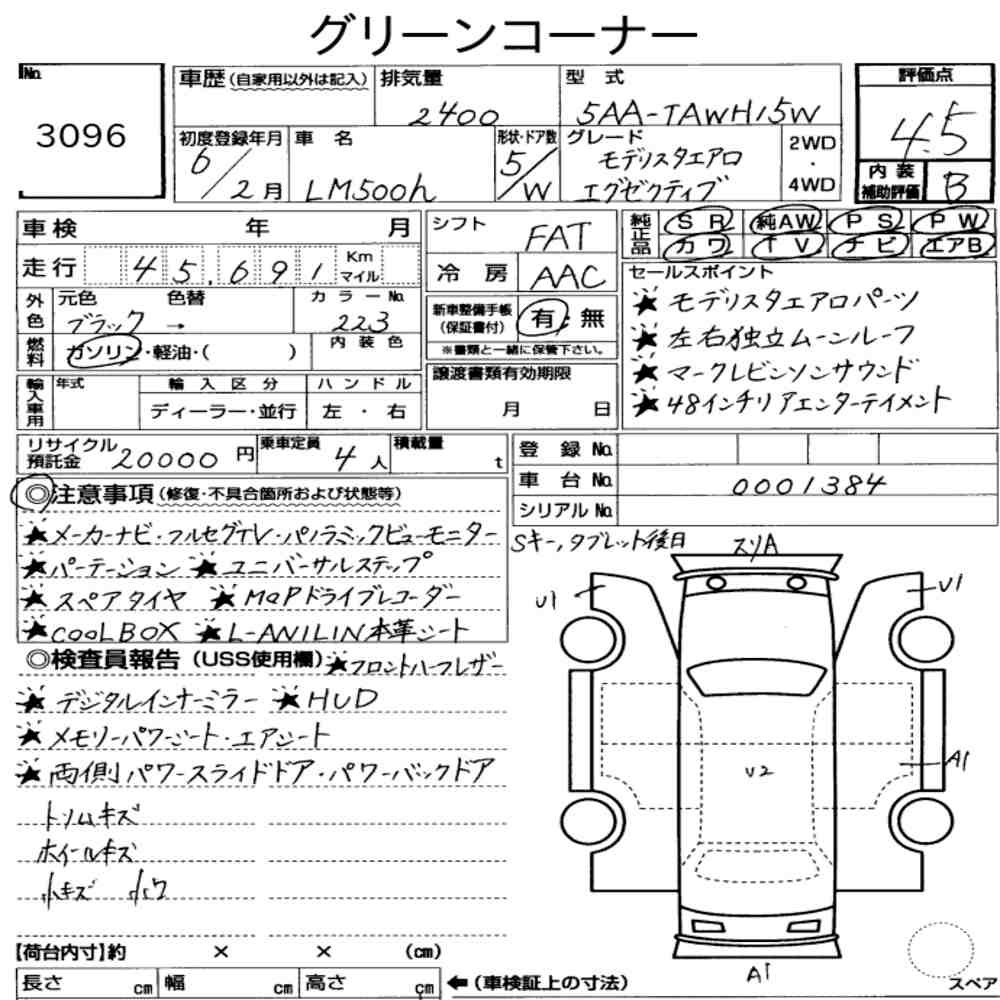 グリーンコーナー
No.
3096
車歴 (自家用以外は記入)
排気量
2400
型式
5AA-TAWH15W
評価点
4.5
初度登録年月
6/2月
車名
LM500h
形状・ドア数
5/W
グレード
モデリスタエアロ
エグゼクティブ
2WD
・
4WD
内装
補助評価
B
車検 年 月
シフト
FAT
純正品
SR 純AW PS PW
カワ TV ナビ エアB
走行 45,691 Km マイル
冷房 AAC
セールスポイント
★モデリスタエアロパーツ
★左右独立ムーンルーフ
★マークレビンソンサウンド
★48インチリアエンターテイメント
外色
元色 色替 カラーNo.
ブラック → 223
新車整備手帳
(保証書付)
有・無
※書類と一緒に保管下さい。
燃料
ガソリン・軽油・( )
内装色
譲渡書類有効期限
月 日
輸入車用
年式 輸入区分 ハンドル
ディーラー・並行 左・右
リサイクル
預託金 20000円
乗車定員
4人
積載量
t
登録No.
車台No.
0001384
シリアルNo.
◎注意事項 (修復・不具合箇所および状態等)
★メーカーナビ・フルセグTV・パノラミックビューモニター
★パーテーション ★ユニバーサルステップ
★スペアタイヤ ★MOPドライブレコーダー
★COOLBOX ★L-ANILIN本革シート
Sキー,タブレット後日
スリA
U1
U1
A1
U2
A1
◎検査員報告 (USS使用欄) ★フロントハーフレザー
★デジタルインナーミラー ★HUD
★メモリーパワーシート・エアシート
★両側パワースライドドア・パワーバックドア
トリムキズ
ホイールキズ
小キズ 小ワ
【荷台内寸】約 × × (cm)
長さ cm 幅 cm 高さ cm
←(車検証上の寸法)
スペア